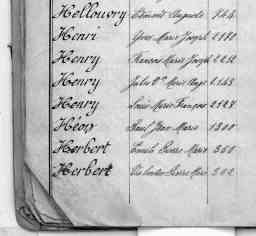 Hellouvry Edmond Auguste 744
Henri Yves Marie Joseph
Henry François Marie Joseph
Henry Jules Marie Ange
Henry Louis Marie François
Héon Paul Jean Marie 1300
Herbert Emile Pierre Marie 360
Herbert Pierre Marie 302